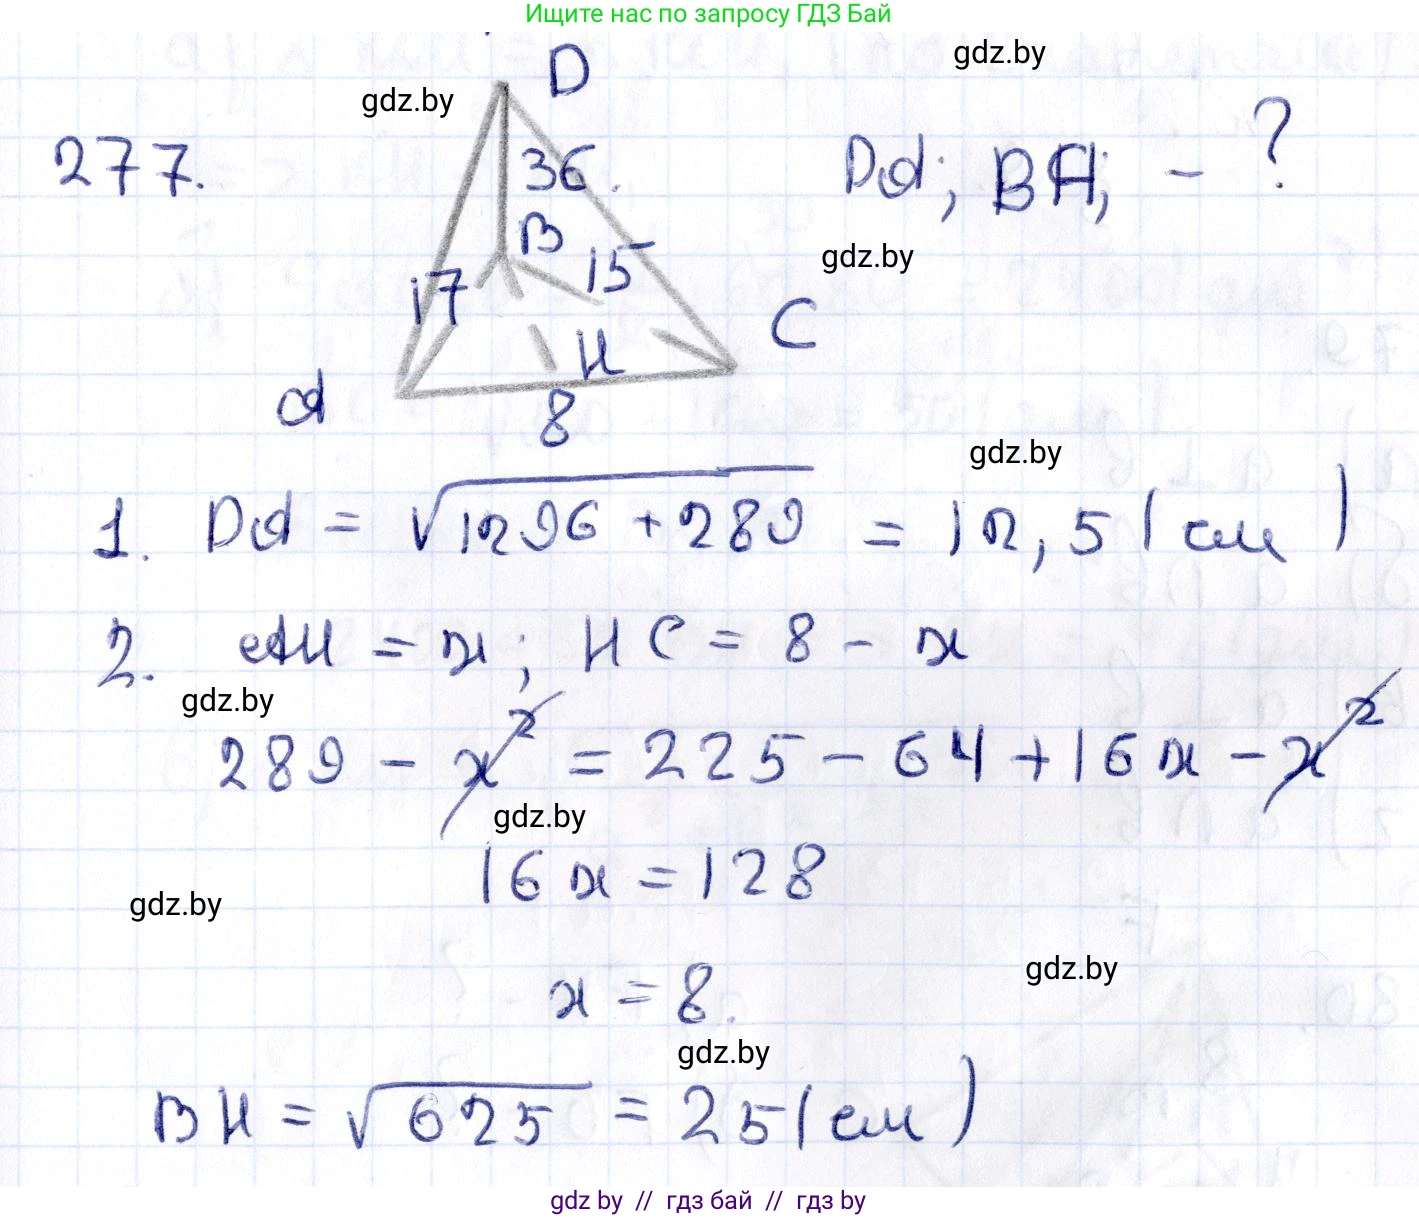 Ищите нас по запросу ГДЗ Бай
gdz.by
D
gdz.by
277.
36.
DA; BA; - ?
B
15
gdz.by
17
C
H
A
8
gdz.by
1. DA = √1296 + 289 = 12,5 (см)
2. AH = x; HC = 8 - x
gdz.by
289 - x² = 225 - 64 + 16x - x²
gdz.by
16x = 128
gdz.by
x = 8.
gdz.by
gdz.by
BH = √625 = 25 (см)
gdz by // гдз бай // гдз by